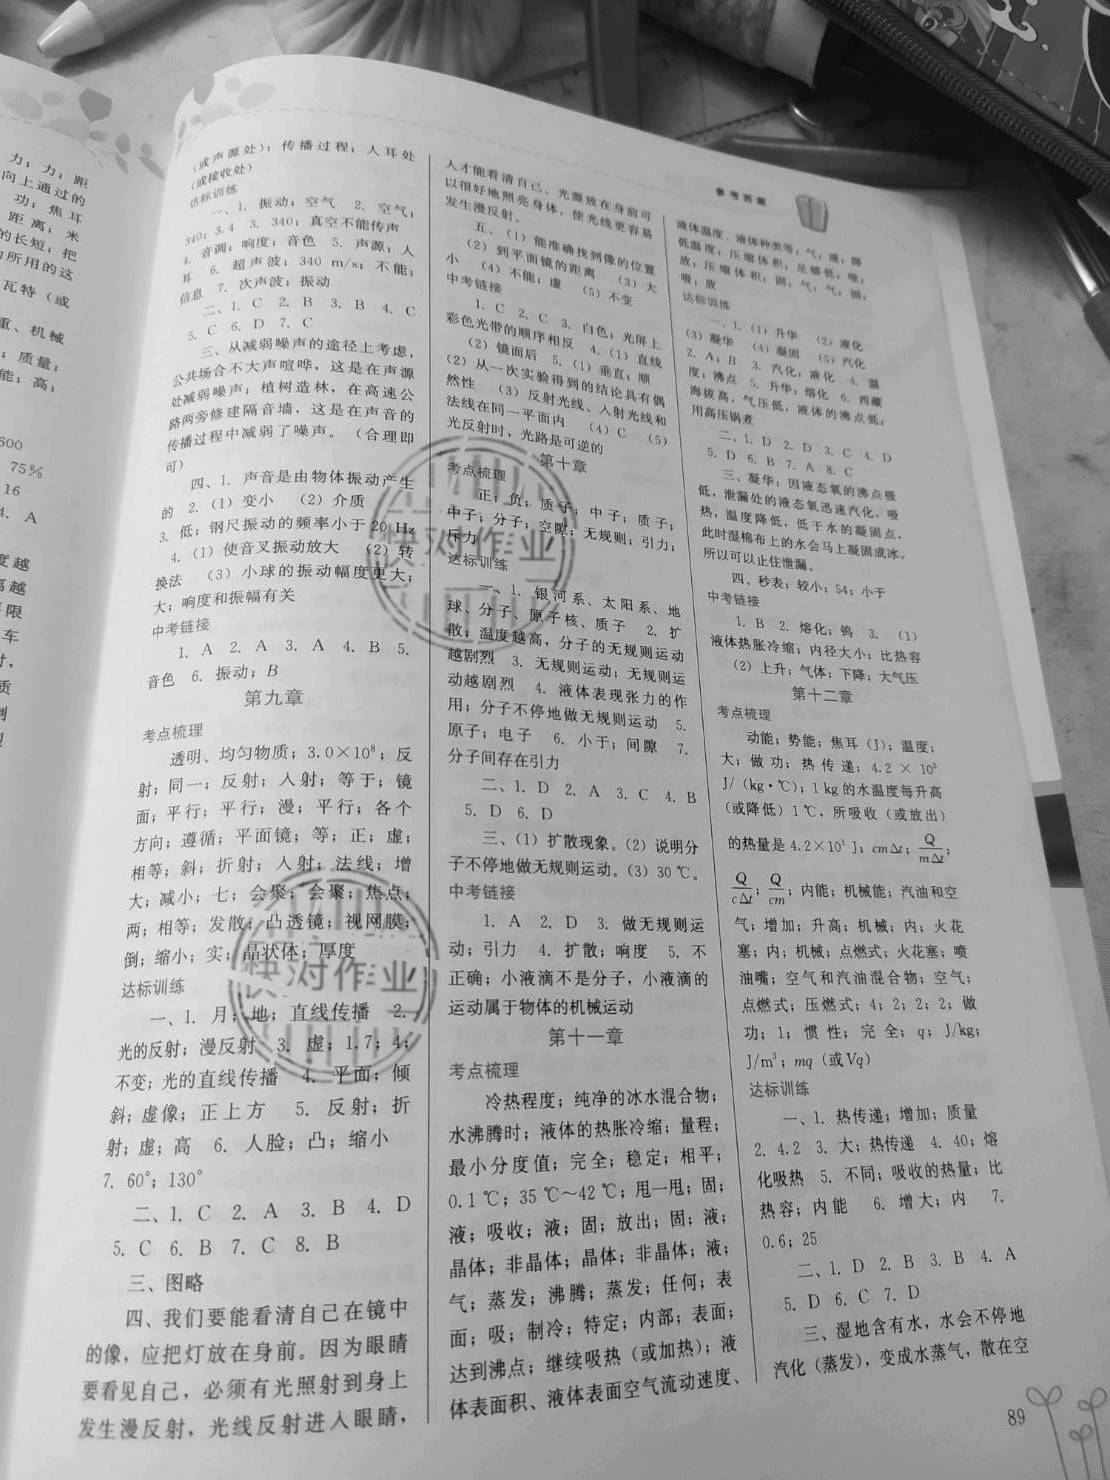 力；力；距
向上通过的
功；焦耳
距离；米
的长短；把
所用的这
瓦特（或
重、机械
；质量；
能；高；
600
75%
16
4. A
度越
车
质
参考答案
（或声源处）；传播过程；人耳处
（或接收处）
达标训练
一、1. 振动；空气　2. 空气；
340；3.4　3. 340；真空不能传声
4. 音调；响度；音色　5. 声源；人
耳　6. 超声波；340 m/s；不能；
信息　7. 次声波；振动
二、1. C　2. B　3. B　4. C
5. C　6. D　7. C
三、从减弱噪声的途径上考虑，
公共场合不大声喧哗，这是在声源
处减弱噪声；植树造林，在高速公
路两旁修建隔音墙，这是在声音的
传播过程中减弱了噪声。（合理即
可）
四、1. 声音是由物体振动产生
的　2.（1）变小　（2）介质
3. 低；钢尺振动的频率小于 20 Hz
4.（1）使音叉振动放大　（2）转
换法　（3）小球的振动幅度更大；
大；响度和振幅有关
中考链接
1. A　2. A　3. A　4. B　5.
音色　6. 振动；B
第九章
考点梳理
透明、均匀物质；3.0×10⁸；反
射；同一；反射；入射；等于；镜
面；平行；平行；漫；平行；各个
方向；遵循；平面镜；等；正；虚；
相等；斜；折射；入射；法线；增
大；减小；七；会聚；会聚；焦点；
两；相等；发散；凸透镜；视网膜；
倒；缩小；实；晶状体；厚度
达标训练
一、1. 月；地；直线传播　2.
光的反射；漫反射　3. 虚；1.7；4；
不变；光的直线传播　4. 平面；倾
斜；虚像；正上方　5. 反射；折
射；虚；高　6. 人脸；凸；缩小
7. 60°；130°
二、1. C　2. A　3. B　4. D
5. C　6. B　7. C　8. B
三、图略
四、我们要能看清自己在镜中
的像，应把灯放在身前。因为眼睛
要看见自己，必须有光照射到身上
发生漫反射，光线反射进入眼睛，
人才能看清自己。光源放在身前可
以很好地照亮身体，使光线更容易
发生漫反射。
五、（1）能准确找到像的位置
（2）到平面镜的距离　（3）大
小　（4）不能；虚　（5）不变
中考链接
1. C　2. C　3. 白色；光屏上
彩色光带的顺序相反　4.（1）直线
（2）镜面后　5.（1）垂直；顺
（2）从一次实验得到的结论具有偶
然性　（3）反射光线、入射光线和
法线在同一平面内　（4）C　（5）
光反射时，光路是可逆的
第十章
考点梳理
正；负；质子；中子；质子；
中子；分子；空隙；无规则；引力；
斥力
达标训练
一、1. 银河系、太阳系、地
球、分子、原子核、质子　2. 扩
散；温度越高，分子的无规则运动
越剧烈　3. 无规则运动；无规则运
动越剧烈　4. 液体表现张力的作
用；分子不停地做无规则运动　5.
原子；电子　6. 小于；间隙　7.
分子间存在引力
二、1. D　2. A　3. C　4. B
5. D　6. D
三、（1）扩散现象。（2）说明分
子不停地做无规则运动。（3）30 ℃。
中考链接
1. A　2. D　3. 做无规则运
动；引力　4. 扩散；响度　5. 不
正确；小液滴不是分子，小液滴的
运动属于物体的机械运动
第十一章
考点梳理
冷热程度；纯净的冰水混合物；
水沸腾时；液体的热胀冷缩；量程；
最小分度值；完全；稳定；相平；
0.1 ℃；35 ℃～42 ℃；甩一甩；固；
液；吸收；液；固；放出；固；液；
晶体；非晶体；晶体；非晶体；液；
气；蒸发；沸腾；蒸发；任何；表
面；吸；制冷；特定；内部；表面；
达到沸点；继续吸热（或加热）；液
体表面积、液体表面空气流动速度、
液体温度、液体种类等；气；液；降
低温度；压缩体积；足够低；吸；
放；压缩体积；固；气；气；固；
吸；放
达标训练
一、1.（1）升华　（2）液化
（3）凝华　（4）凝固　（5）汽化
2. A；B　3. 汽化；液化　4. 温
度；沸点　5. 升华；熔化　6. 西藏
海拔高，气压低，液体的沸点低；
用高压锅煮
二、1. D　2. D　3. C　4. D
5. D　6. B　7. A　8. C
三、凝华；因液态氧的沸点极
低，泄漏处的液态氧迅速汽化，吸
热，温度降低，低于水的凝固点，
此时湿棉布上的水会马上凝固成冰，
所以可以止住泄漏。
四、秒表；较小；54；小于
中考链接
1. B　2. 熔化；钨　3.（1）
液体热胀冷缩；内径大小；比热容
（2）上升；气体；下降；大气压
第十二章
考点梳理
动能；势能；焦耳（J）；温度；
大；做功；热传递；4.2 × 10³
J/（kg·℃）；1 kg 的水温度每升高
（或降低）1 ℃，所吸收（或放出）
的热量是 4.2×10³ J；cmΔt；Q/mΔt；
Q/cΔt；Q/cm；内能；机械能；汽油和空
气；增加；升高；机械；内；火花
塞；内；机械；点燃式；火花塞；喷
油嘴；空气和汽油混合物；空气；
点燃式；压燃式；4；2；2；2；做
功；1；惯性；完全；q；J/kg；
J/m³；mq（或Vq）
达标训练
一、1. 热传递；增加；质量
2. 4.2　3. 大；热传递　4. 40；熔
化吸热　5. 不同；吸收的热量；比
热容；内能　6. 增大；内　7.
0.6；25
二、1. D　2. B　3. B　4. A
5. D　6. C　7. D
三、湿地含有水，水会不停地
汽化（蒸发），变成水蒸气，散在空
89
快对作业
快对作业